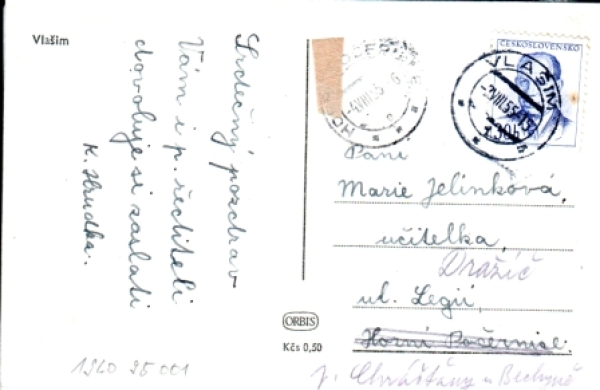 Vlašim
Srdečný pozdrav
Vám i p. řediteli
dovoluje si zaslati
K. Hrudka.
ČESKOSLOVENSKO
VLAŠIM
HOR POČER
Paní
Marie Jelínková,
učitelka,
Dražíč
ul. Legií,
Horní Počernice.
p. Chrášťany u Bechyně
ORBIS
Kčs 0,50
1960 95 001